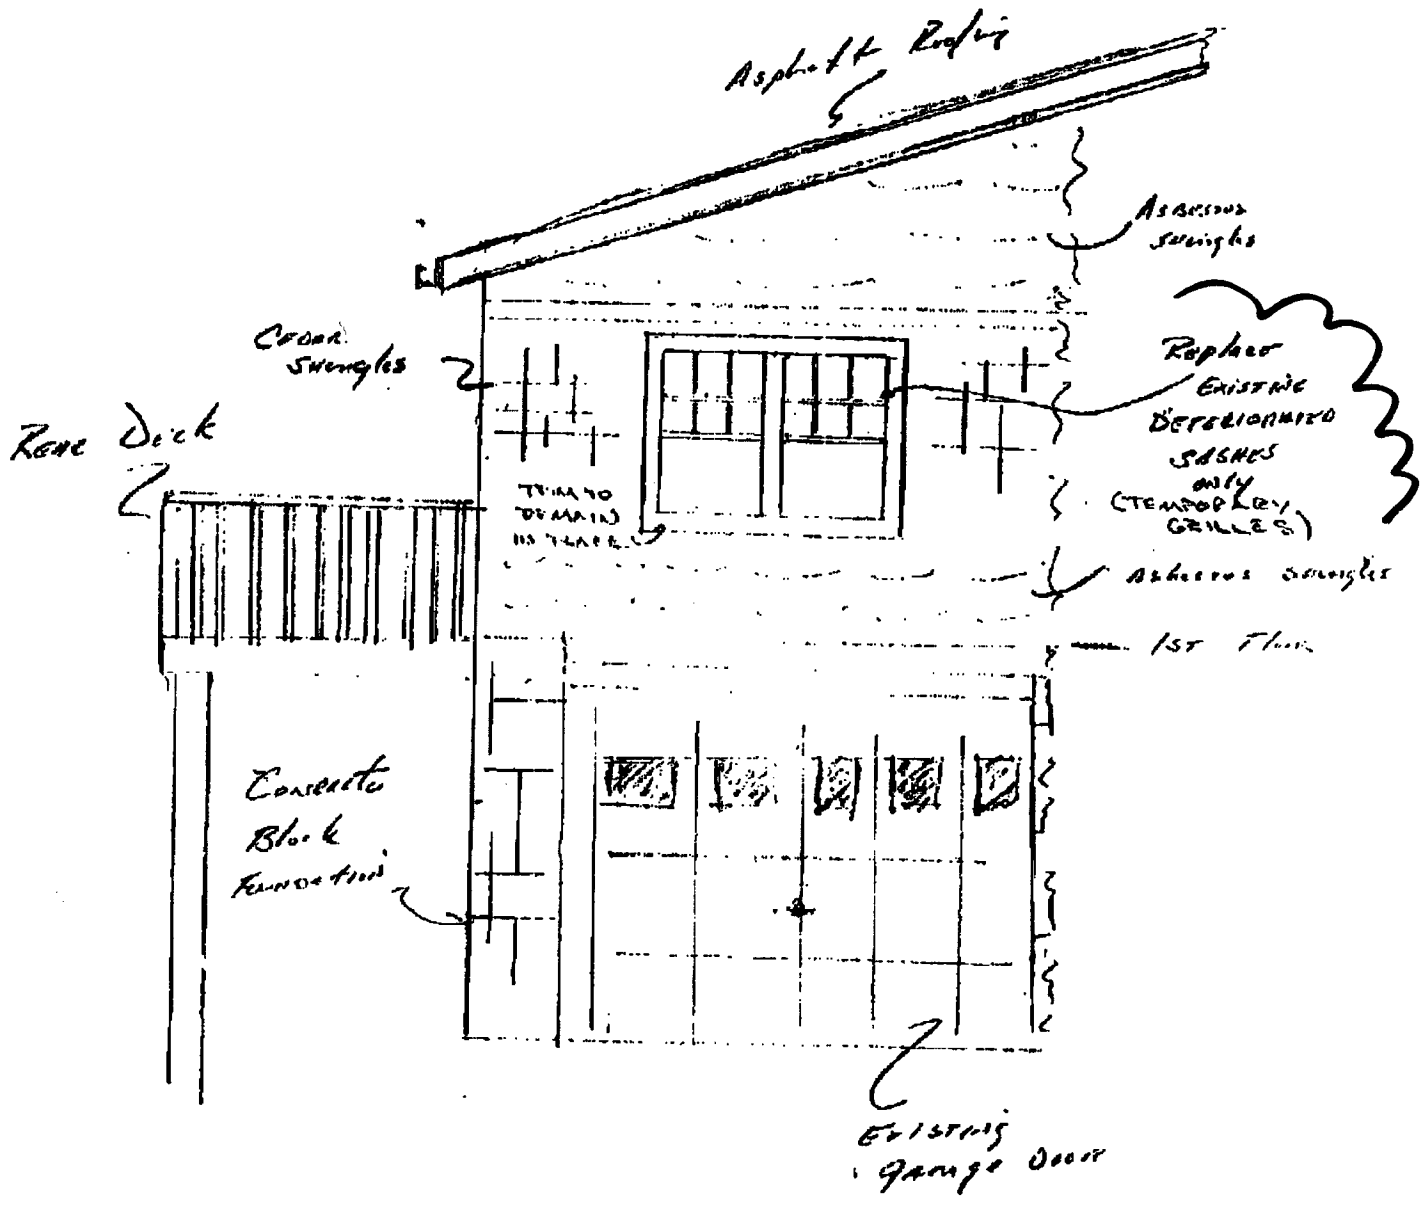 Asphalt Roofing
Asbestos
Shingles
Cedar
Shingles
Replace
Existing
Deteriorated
Sashes
only
(Temporary
Grilles)
Rear Deck
Trim to
Remain
in Place
Asbestos Shingles
1st Floor
Concrete
Block
Foundation
Existing
Garage Door